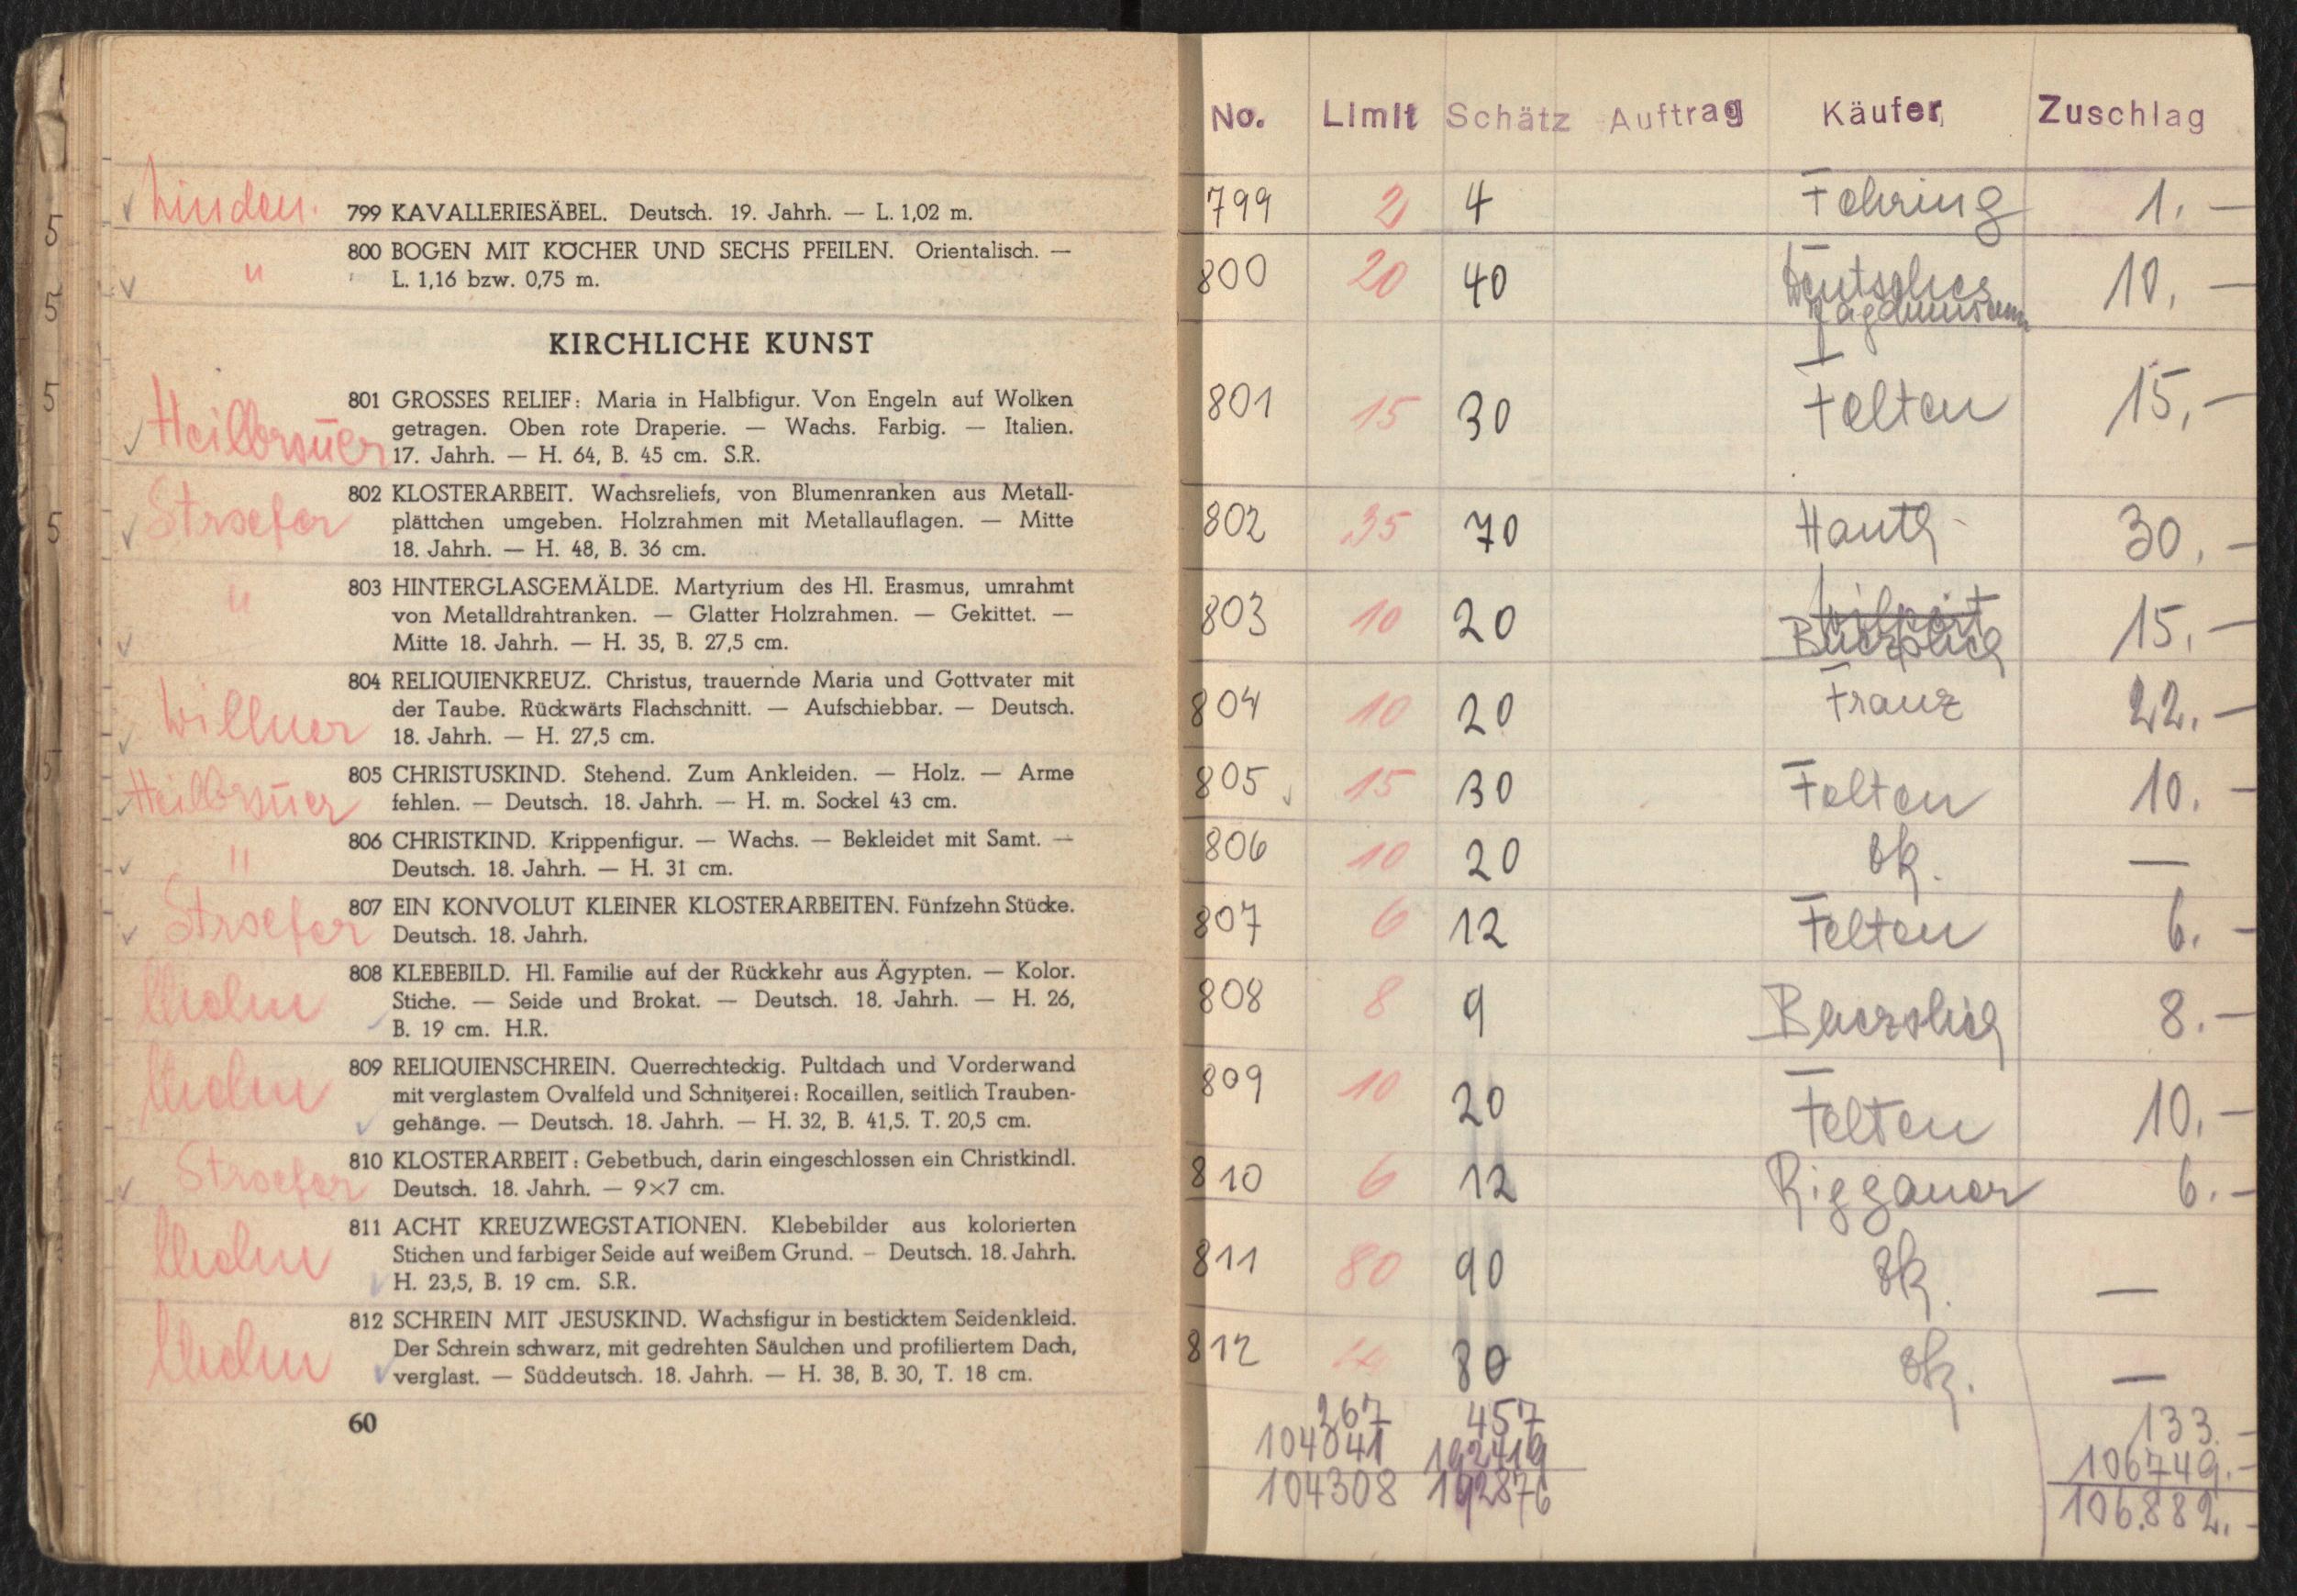 Linden.
799 KAVALLERIESÄBEL. Deutsch. 19. Jahrh. — L. 1,02 m.
"
800 BOGEN MIT KÖCHER UND SECHS PFEILEN. Orientalisch. —
L. 1,16 bzw. 0,75 m.
KIRCHLICHE KUNST
Heilbronner
801 GROSSES RELIEF: Maria in Halbfigur. Von Engeln auf Wolken
getragen. Oben rote Draperie. — Wachs. Farbig. — Italien.
17. Jahrh. — H. 64, B. 45 cm. S.R.
Stroefer
802 KLOSTERARBEIT. Wachsreliefs, von Blumenranken aus Metall-
plättchen umgeben. Holzrahmen mit Metallauflagen. — Mitte
18. Jahrh. — H. 48, B. 36 cm.
"
803 HINTERGLASGEMÄLDE. Martyrium des Hl. Erasmus, umrahmt
von Metalldrahtranken. — Glatter Holzrahmen. — Gekittet. —
Mitte 18. Jahrh. — H. 35, B. 27,5 cm.
Willner
804 RELIQUIENKREUZ. Christus, trauernde Maria und Gottvater mit
der Taube. Rückwärts Flachschnitt. — Aufschiebbar. — Deutsch.
18. Jahrh. — H. 27,5 cm.
805 CHRISTUSKIND. Stehend. Zum Ankleiden. — Holz. — Arme
fehlen. — Deutsch. 18. Jahrh. — H. m. Sockel 43 cm.
"
806 CHRISTKIND. Krippenfigur. — Wachs. — Bekleidet mit Samt. —
Deutsch. 18. Jahrh. — H. 31 cm.
Stroefer
807 EIN KONVOLUT KLEINER KLOSTERARBEITEN. Fünfzehn Stücke.
Deutsch. 18. Jahrh.
808 KLEBEBILD. Hl. Familie auf der Rückkehr aus Ägypten. — Kolor.
Stiche. — Seide und Brokat. — Deutsch. 18. Jahrh. — H. 26,
B. 19 cm. H.R.
809 RELIQUIENSCHREIN. Querrechteckig. Pultdach und Vorderwand
mit verglastem Ovalfeld und Schnitzerei: Rocaillen, seitlich Trauben-
gehänge. — Deutsch. 18. Jahrh. — H. 32, B. 41,5. T. 20,5 cm.
Stroefer
810 KLOSTERARBEIT: Gebetbuch, darin eingeschlossen ein Christkindl.
Deutsch. 18. Jahrh. — 9×7 cm.
811 ACHT KREUZWEGSTATIONEN. Klebebilder aus kolorierten
Stichen und farbiger Seide auf weißem Grund. – Deutsch. 18. Jahrh.
H. 23,5, B. 19 cm. S.R.
812 SCHREIN MIT JESUSKIND. Wachsfigur in besticktem Seidenkleid.
Der Schrein schwarz, mit gedrehten Säulchen und profiliertem Dach,
verglast. — Süddeutsch. 18. Jahrh. — H. 38, B. 30, T. 18 cm.
60
No. Limit Schätz Auftrag Käufer Zuschlag
799 2 4 Fehring 1.—
800 20 40 Deutsches Jagdmuseum 10.—
801 15 30 Felten 15.—
802 35 70 Hauth 30.—
803 10 20 15.—
804 10 20 Franz 22.—
805 15 30 Felten 10.—
806 10 20 zk. —
807 6 12 Felten 6.—
808 8 9 8.—
809 10 20 Felten 10.—
810 6 12 Riggauer 6.—
811 80 90 zk. —
812 80 zk. —
267 457 133.—
104041 192419 106749.—
104308 192876 106.882.—